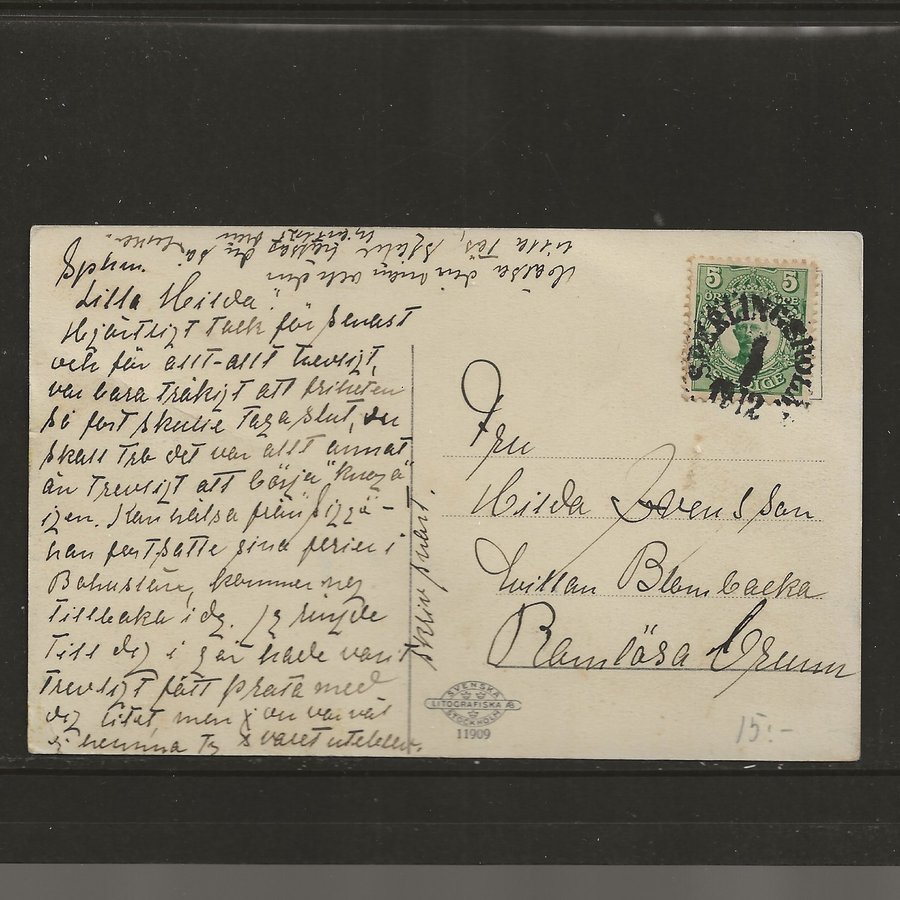 Sphm.
Lilla Hilda!
Hjärtligt tack för senast
och för allt-allt trevligt,
var bara tråkigt att friheten
så fort skulle taga slut, du
skall tro det var allt annat
än trevligt att börja "knoga"
igen. Kan hälsa från Sigge -
han fortsatte sina ferier i
Bohuslän, kommer nog
tillbaka i dg. Jg ringde
till dig i går hade varit
trevligt fått prata med
dig litet, men du var väl
ej hemma ty svaret uteblev.
Skriv snart.
Hälsa din man och den
lilla
hjärtligt
5 5
ÖRE ÖRE
SVERIGE
SPERLINGSHOLM
1912
Fru
Hilda Svensson
Willan Blombacka
Ramlösa Brunn
SVENSKA
LITOGRAFISKA AB
STOCKHOLM
11909
15:-